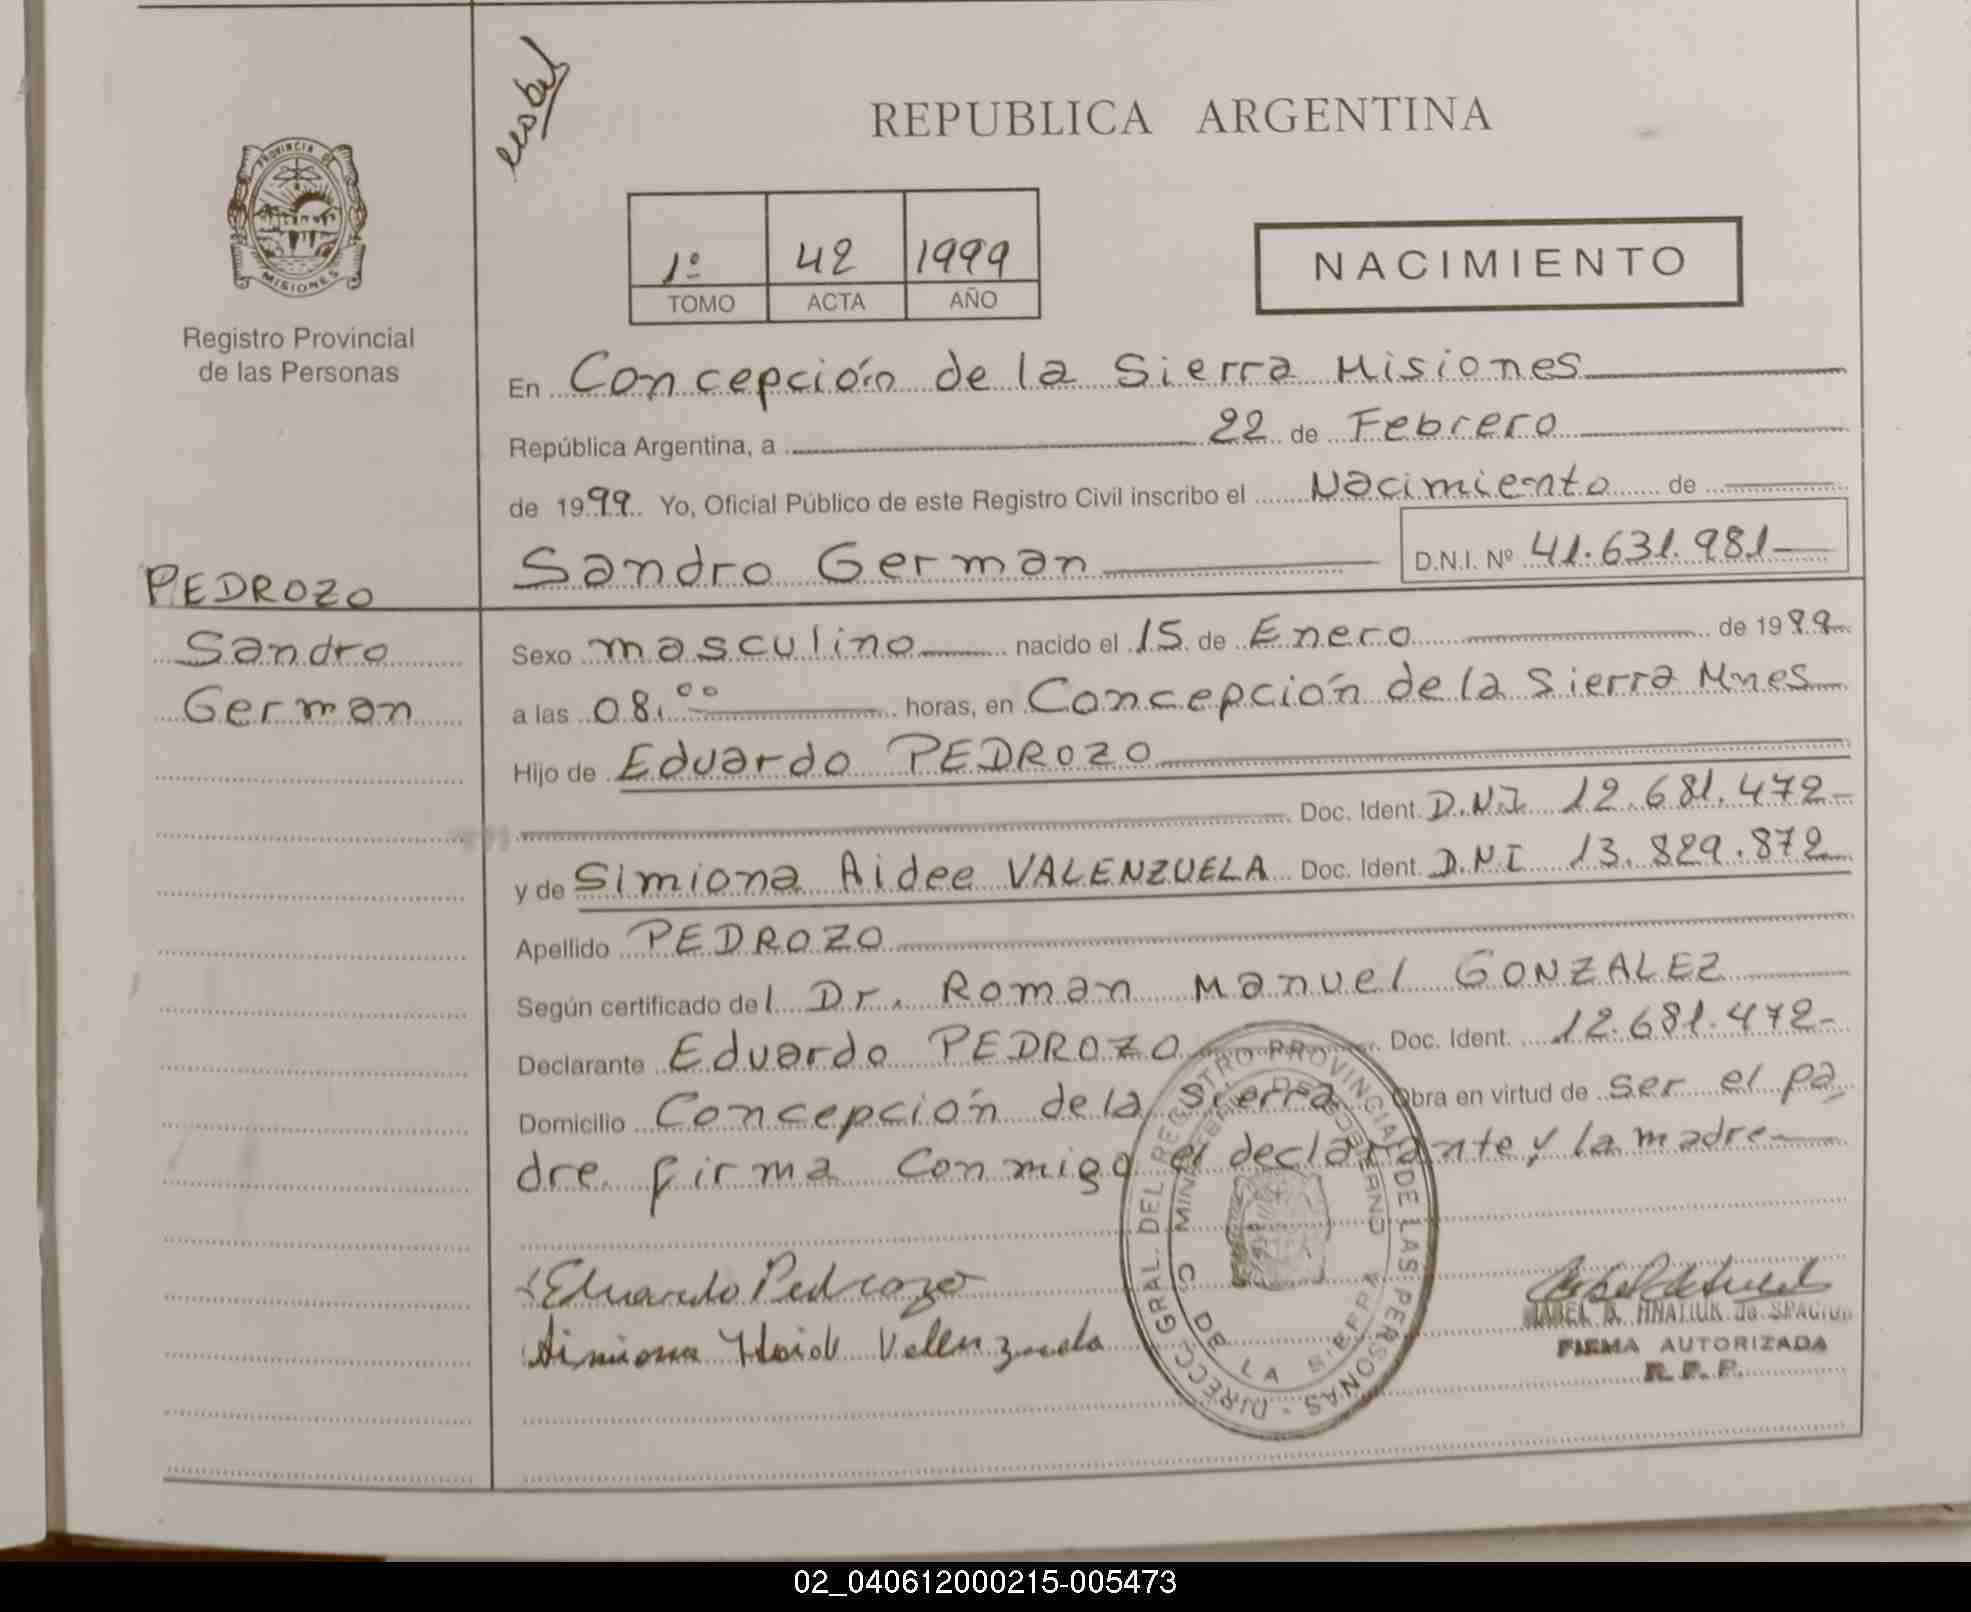 REPUBLICA ARGENTINA
PROVINCIA DE
MISIONES
Registro Provincial
de las Personas
1º 42 1999
TOMO ACTA AÑO
NACIMIENTO
En Concepción de la Sierra Misiones
República Argentina, a 22 de Febrero
de 1999 Yo, Oficial Público de este Registro Civil inscribo el Nacimiento de
Sandro German D.N.I. Nº 41.631.981
PEDROZO
Sandro
German
Sexo masculino nacido el 15 de Enero de 1999
a las 08.00 horas, en Concepción de la Sierra Mnes
Hijo de Eduardo PEDROZO
Doc. Ident. D.N.I 12.681.472
y de Simiona Aidee VALENZUELA Doc. Ident. D.N.I 13.829.872
Apellido PEDROZO
Según certificado del Dr. Roman Manuel GONZALEZ
Declarante Eduardo PEDROZO Doc. Ident. 12.681.472
Domicilio Concepción de la Sierra Obra en virtud de ser el pa
dre firma conmigo el declarante y la madre
Eduardo Pedrozo
Valenzuela
DIRECC. GRAL. DEL REGISTRO PROVINCIAL DE LAS PERSONAS
DE GOBIERNO
C DE LA SIERRA
HNATIUK de
FIRMA AUTORIZADA
R. P. P.
02_040612000215-005473